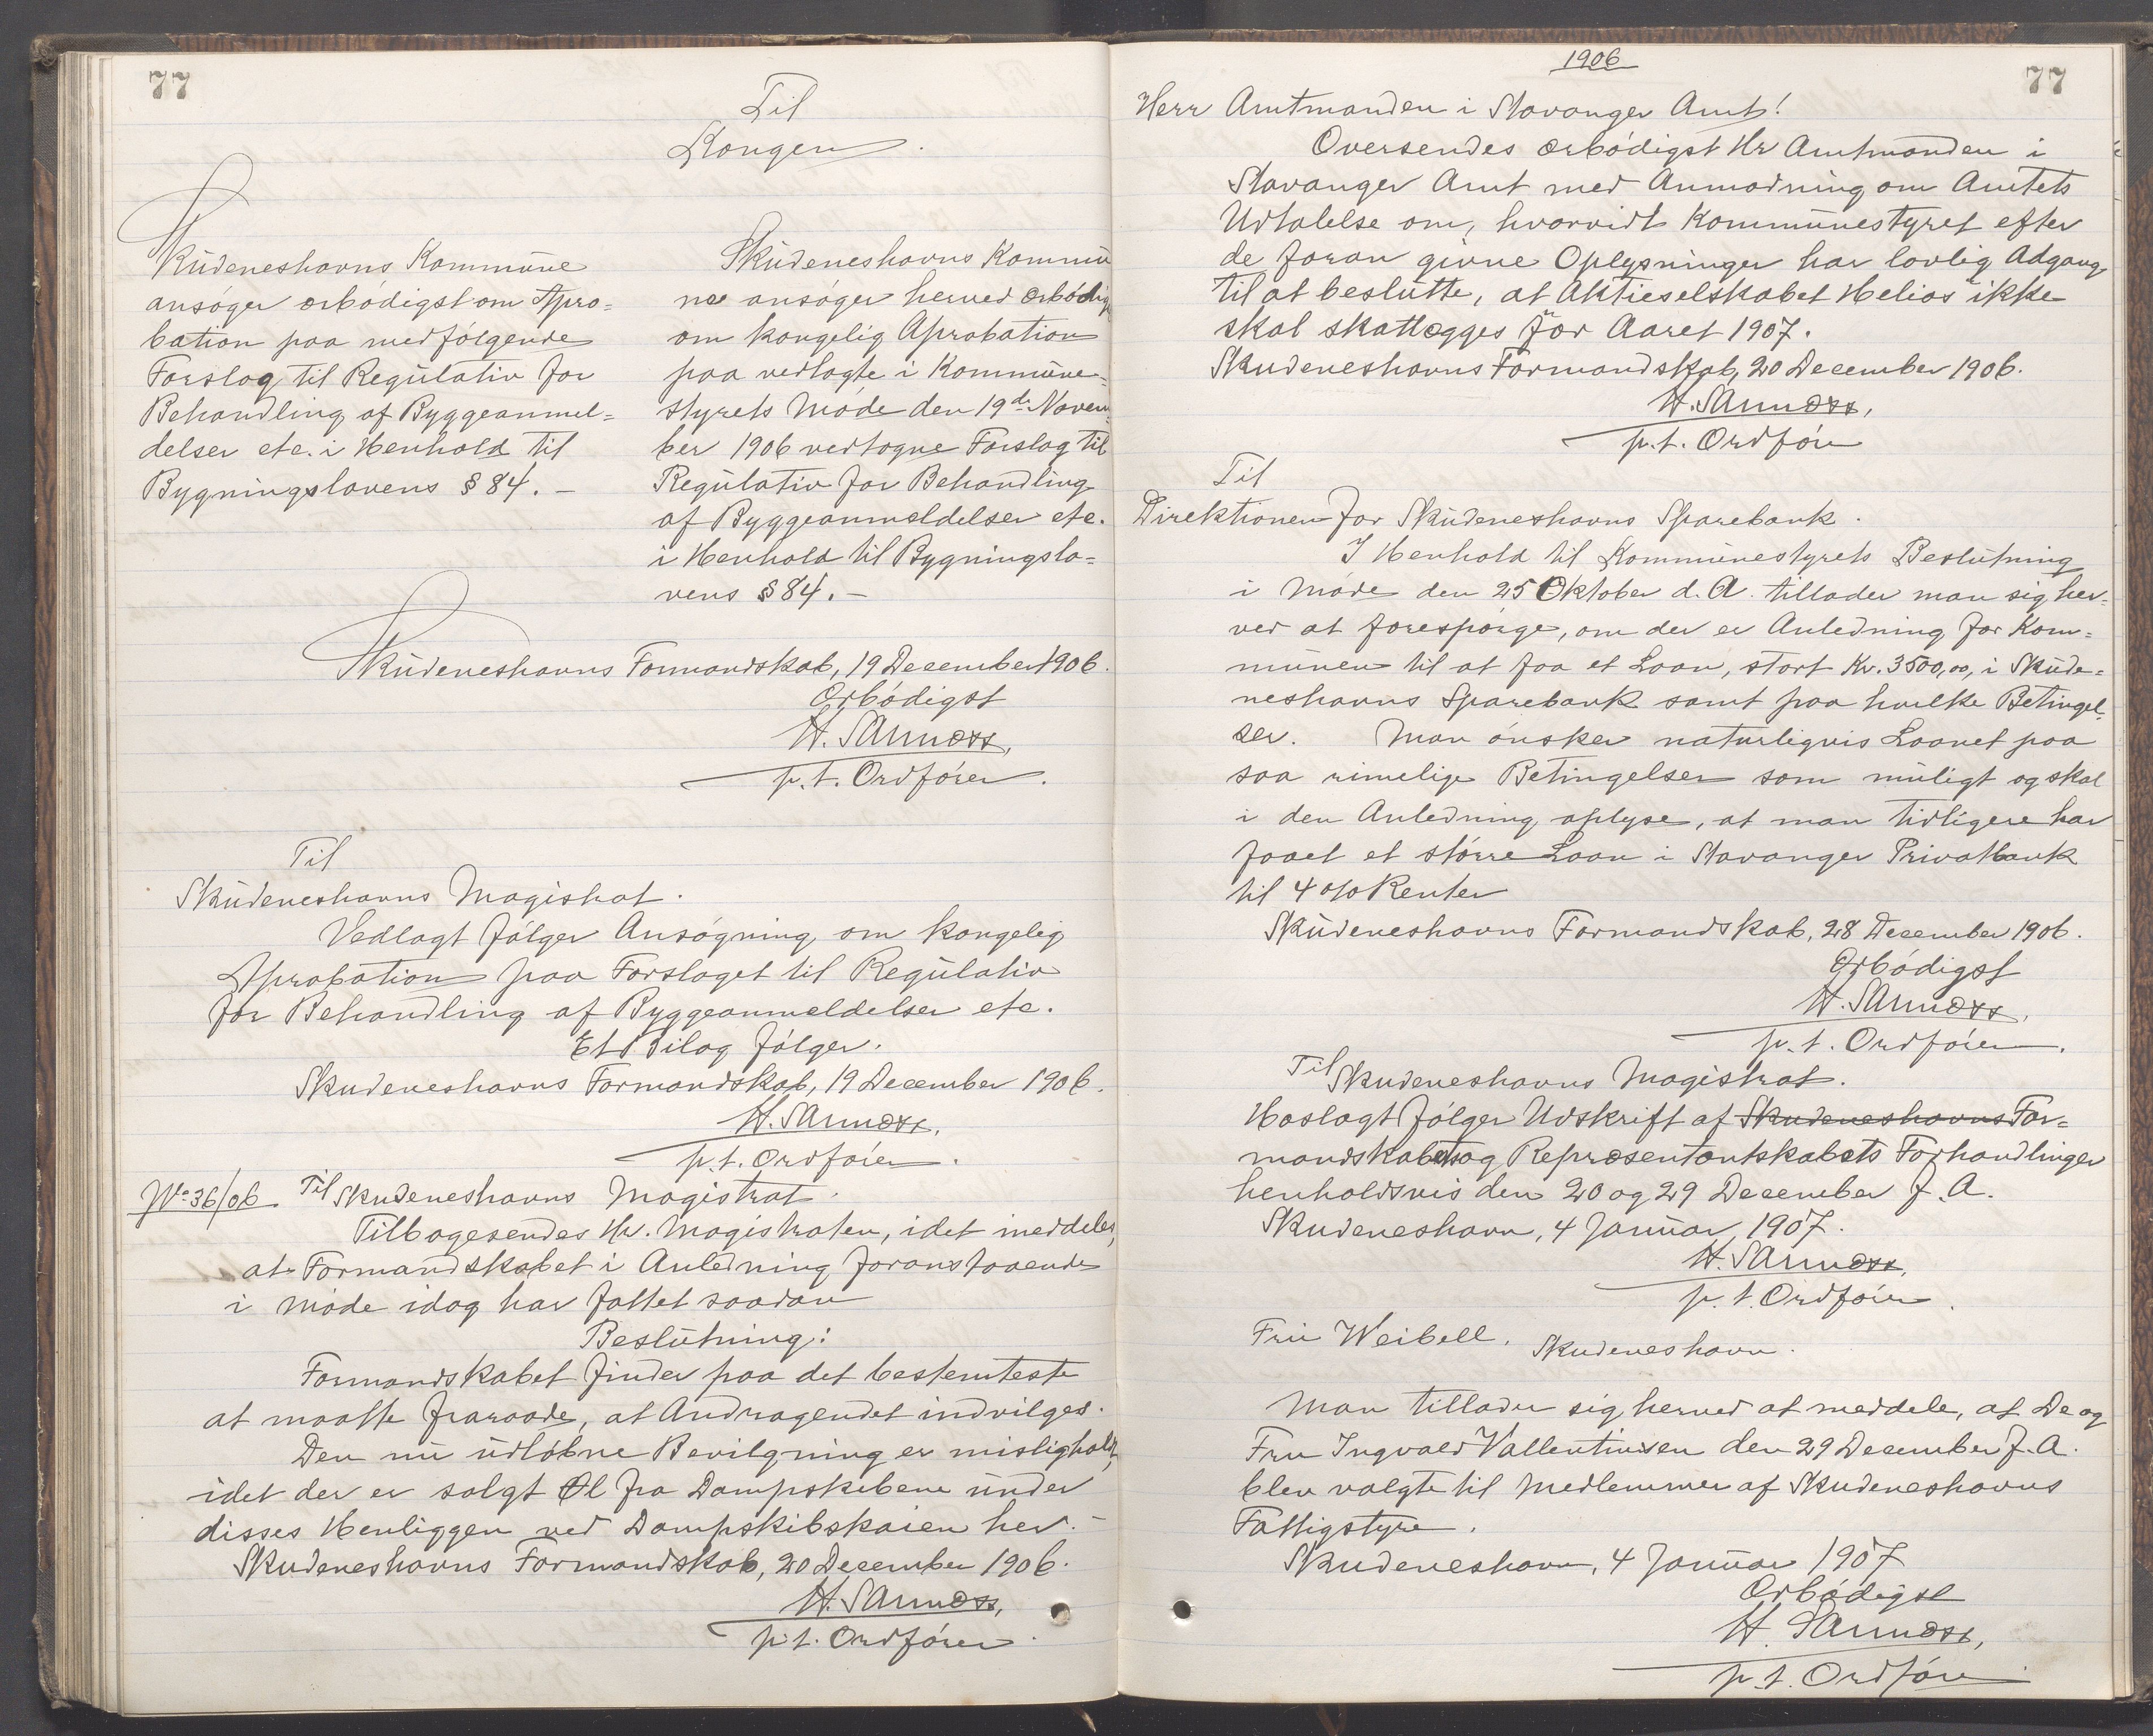 77
Til
Kongen.
Skudeneshavns Kommune
ansøger ærbødigst om Apro=
bation paa medfølgende
Forslag til Regulativ for
Behandling af Byggeanmel=
delser etc. i Henhold til
Bygningslovens § 84. –
Skudeneshavns Kommu
ne ansøger herved ærbødigst
om kongelig Aprobation
paa vedlagte i Kommune=
styrets Møde den 19de Novem
ber 1906 vedtagne Forslag til
Regulativ for Behandling
af Byggeanmeldelser etc.
i Henhold til Bygningslo=
vens § 84. –
Skudeneshavns Formandskab, 19 December 1906.
Ærbødigst
p.t. Ordfører.
Til
Skudeneshavns Magistrat.
Vedlagt følger Ansøgning om kongelig
Aprobation paa Forslaget til Regulativ
for Behandling af Byggeanmeldelser etc.
Et Bilag følger.
Skudeneshavns Formandskab, 19 December 1906.
p.t. Ordfører.
No 36/06 Til Skudeneshavns Magistrat.
Tilbagesendes Hr. Magistraten, idet meddeles,
at Formandskabet i Anledning foranstaaende
i Møde idag har fattet saadan
Beslutning:
Formandskabet finder paa det bestemteste
at maatte fraraade, at Andragendet indvilges.
Den nu udløbne Bevilgning er misligholdt,
idet der er solgt Øl fra Dampskibene under
disses Henliggen ved Dampskibskaien her. –
Skudeneshavns Formandskab, 20 December 1906.
p.t. Ordfører.
1906
77
Herr Amtmanden i Stavanger Amt!
Oversendes ærbødigst Hr Amtmanden i
Stavanger Amt med Anmodning om Amtets
Udtalelse om, hvorvidt Kommunestyret efter
de foran givne Oplysninger har lovlig Adgang
til at beslutte, at Aktieselskabet Helios ikke
skal skatlægges for Aaret 1907.
Skudeneshavns Formandskab, 20 December 1906.
p.t. Ordfører
Til
Direktionen for Skudeneshavns Sparebank.
I Henhold til Kommunestyrets Beslutning
i Møde den 25 Oktober d. A. tillader man sig her=
ved at forespørge, om der er Anledning for Kom=
munen til at faa et Laan, stort Kr. 3500,00, i Skude=
neshavns Sparebank samt paa hvilke Betingel=
ser. Man ønsker naturligvis Laanet paa
saa rimelige Betingelser som muligt og skal
i den Anledning oplyse, at man tidligere har
faaet et større Laan i Stavanger Privatbank
til 4 o/o Renter
Skudeneshavns Formandskab, 28 December 1906.
Ærbødigst
p.t. Ordfører.
Til Skudeneshavns Magistrat.
Hoslagt følger Udskrift af Skudeneshavns For=
mandskabets og Repræsentantskabets Forhandlinger
henholdsvis den 20 og 29 December f. A.
Skudeneshavn, 4 Januar 1907.
p.t. Ordfører.
Fru Weibell. Skudeneshavn.
Man tillader sig herved at meddele, at De og
Fru Ingvald Vallentinsen den 29 December f. A.
blev valgte til Medlemmer af Skudeneshavns
Fattigstyre.
Skudeneshavn, 4 Januar 1907
Ærbødigst
p.t. Ordfører